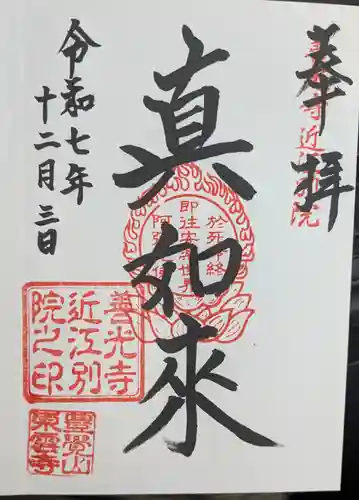 奉拝
善光寺近江別院
真如來
於死即終
即往安樂世界
阿弥陀
令和七年
十二月三日
善光寺
近江別
院之印
豊覺山
東雲寺